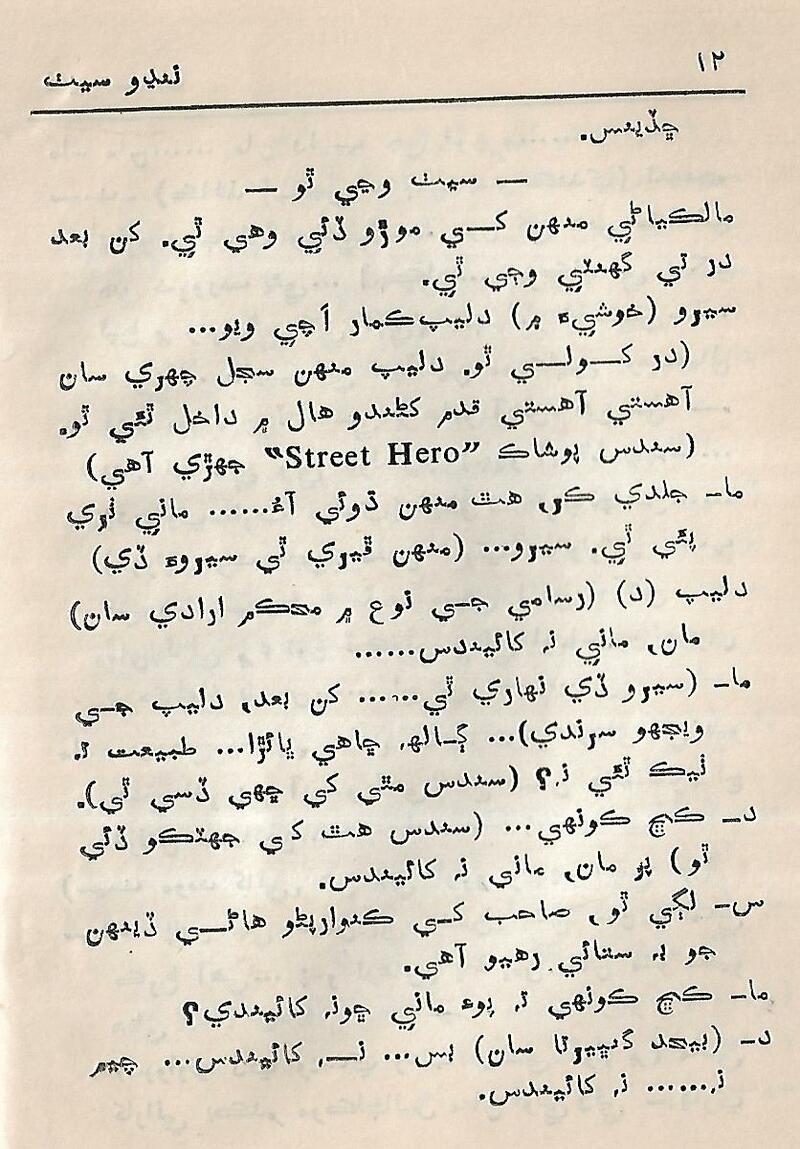 ١٢
ننڍو سيٺ
ڇڏيندس.
— سيٺ وڃي ٿو —
مالڪياڻي منهن کي موڙو ڏئي وهي ٿي. کن بعد
در تي گهنٽي وڄي ٿي.
سيرو (خوشيءَ ۾) دليپ‌ڪمار اَچي ويو...
(در کولي ٿو. دليپ منهن سڄل چهري سان
آهستي آهستي قدم کڻندو هال ۾ داخل ٿئي ٿو.
(سندس پوشاڪ “Street Hero” جهڙي آهي)
ما- جلدي ڪر، هٿ منهن ڌوئي آءُ...... ماني ٿري
پئي ٿي. سيرو... (منهن ڦيري ٿي سيروءَ ڏي)
دليپ (د) (رسامي جي نوع ۾ محڪم ارادي سان)
مان، ماني نہ کائيندس......
ما- (سيرو ڏي نهاري ٿي...... کن بعد، دليپ جي
ويجهو سرندي)... ڳالهہ ڇاهي ڀائڙا... طبيعت تہ
ٺيڪ ٿئي نہ؟ (سندس مٿي کي ڇهي ڏسي ٿي).
د- ڪڇ ڪونهي... (سندس هٿ کي جهٽڪو ڏئي
ٿو) پر مان، ماني نہ کائيندس.
س- لڳي ٿو، صاحب کي ڪنوارپڻو هاڻي ڏينهن
جو بہ ستائي رهيو آهي.
ما- ڪڇ ڪونهي تہ پوءِ ماني ڇونہ کائيندي؟
د- (بيحد گنڀيرتا سان) بس... نہ کائيندس... چيم
نہ...... نہ کائيندس.